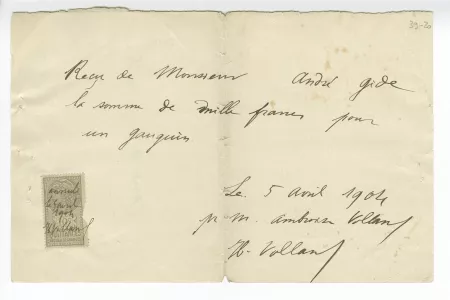 39-20
Reçu de Monsieur André Gide
la somme de mille francs pour
un gauguin
Le 5 Avril 1904
pr M. Ambroise Vollard
Vollard
5 Avril
1904
Vollard